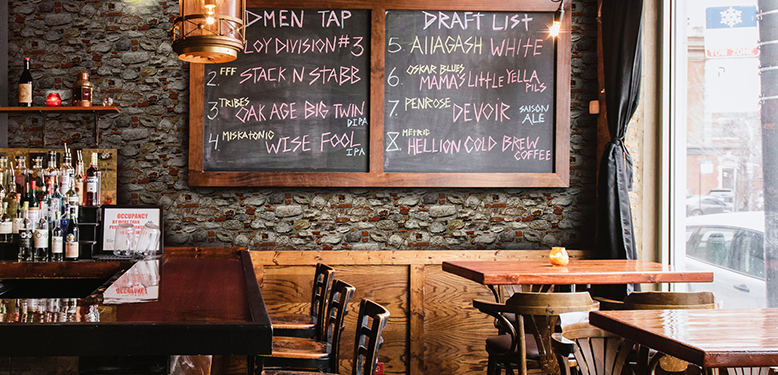 DMEN TAP
LOY DIVISION #3
2. FFF
STACK N STABB
3 TRIBES
OAK AGE BIG TWIN
DIPA
4 MISKATONIC
WISE FOOL
IPA
DRAFT LIST
5. AllAGASH WHITE
6. OSKAR BLUES
MAMA'S LITTLE YELLA
PILS
7 PENROSE
DEVOIR SAISON
ALE
8. METRIC
HELLION COLD BREW
COFFEE
TOW ZONE
OCCUPANCY
BY MORE THAN